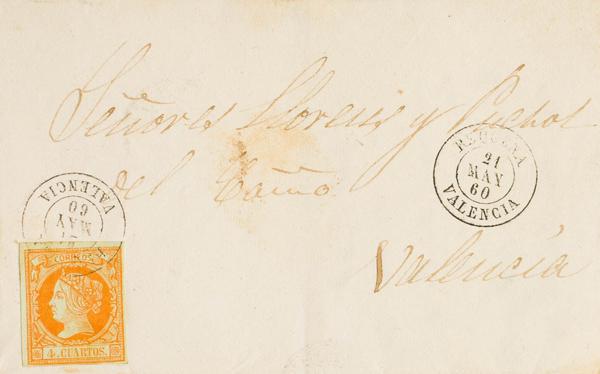 Señores Llorens y Puchol
del Caño
Valencia
REQUENA
21
MAY
60
VALENCIA
VALENCIA
60
MAY
CORREOS
4 CUARTOS.